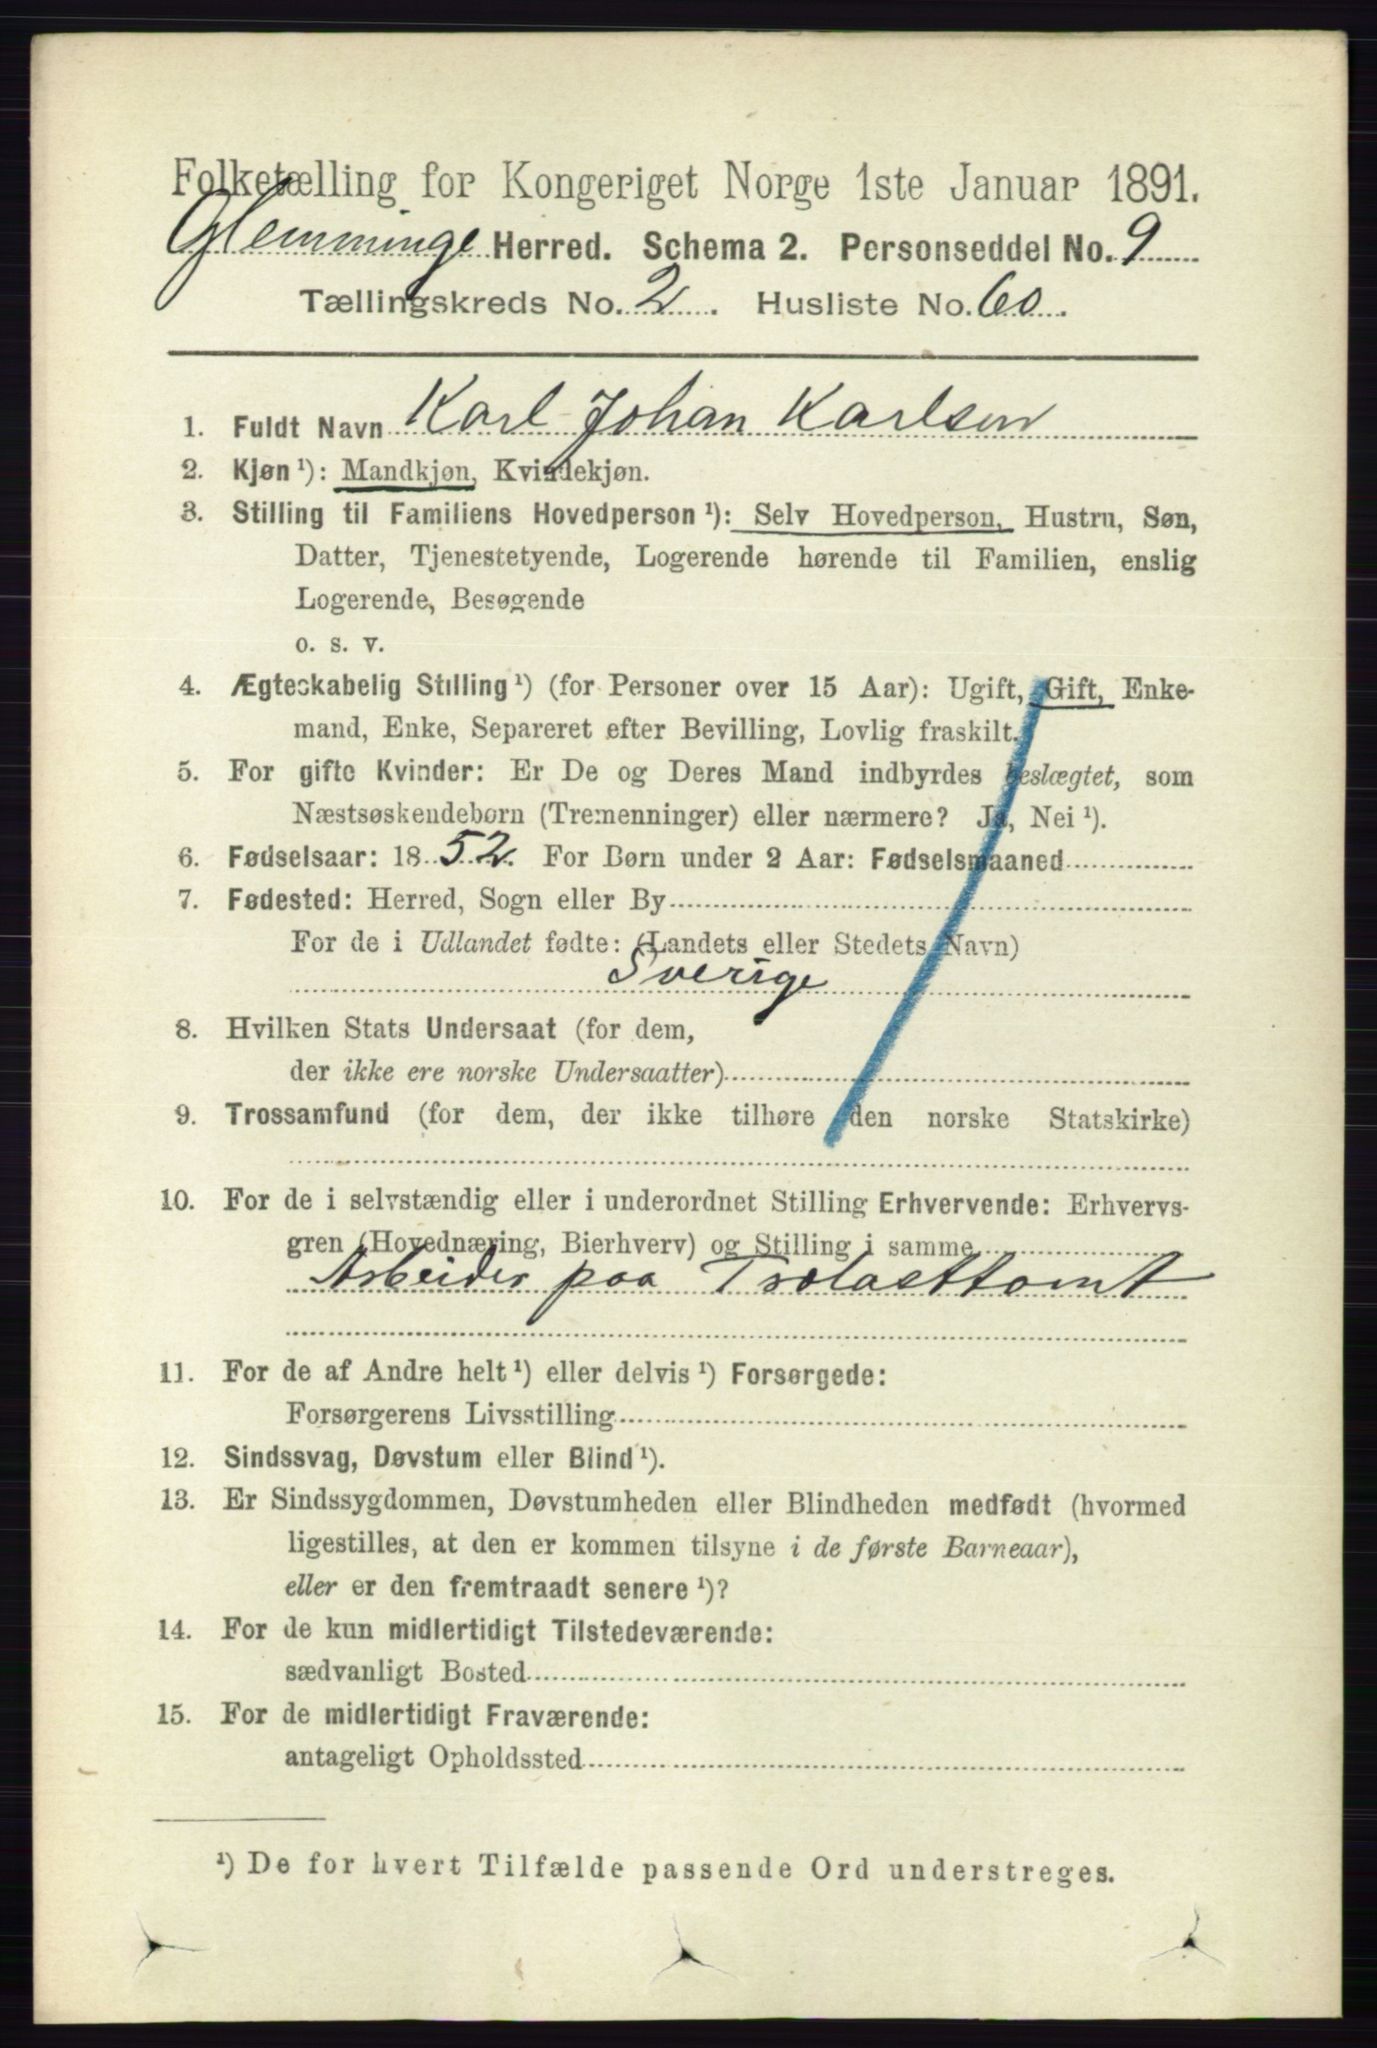 Folketælling for Kongeriget Norge 1ste Januar 1891.
Glemminge Herred. Schema 2. Personseddel No. 9
Tællingskreds No. 2. Husliste No. 60.
1. Fuldt Navn Karl Johan Karlsen
2. Kjøn ¹): Mandkjøn, Kvindekjøn.
3. Stilling til Familiens Hovedperson ¹): Selv Hovedperson, Hustru, Søn,
Datter, Tjenestetyende, Logerende hørende til Familien, enslig
Logerende, Besøgende
o. s. v.
4. Ægteskabelig Stilling ¹) (for Personer over 15 Aar): Ugift, Gift, Enke-
mand, Enke, Separeret efter Bevilling, Lovlig fraskilt.
5. For gifte Kvinder: Er De og Deres Mand indbyrdes beslægtet, som
Næstsøskendebørn (Tremenninger) eller nærmere? Ja, Nei ¹).
6. Fødselsaar: 1852. For Børn under 2 Aar: Fødselsmaaned
7. Fødested: Herred, Sogn eller By
For de i Udlandet fødte: (Landets eller Stedets Navn)
Sverige
8. Hvilken Stats Undersaat (for dem,
der ikke ere norske Undersaatter)
9. Trossamfund (for dem, der ikke tilhøre den norske Statskirke)
10. For de i selvstændig eller i underordnet Stilling Erhvervende: Erhvervs-
gren (Hovednæring, Bierhverv) og Stilling i samme
Arbeider paa Trælasttomt
11. For de af Andre helt ¹) eller delvis ¹) Forsørgede:
Forsørgerens Livsstilling
12. Sindssvag, Døvstum eller Blind ¹).
13. Er Sindssygdommen, Døvstumheden eller Blindheden medfødt (hvormed
ligestilles, at den er kommen tilsyne i de første Barneaar),
eller er den fremtraadt senere ¹)?
14. For de kun midlertidigt Tilstedeværende:
sædvanligt Bosted
15. For de midlertidigt Fraværende:
antageligt Opholdssted
¹) De for hvert Tilfælde passende Ord understreges.